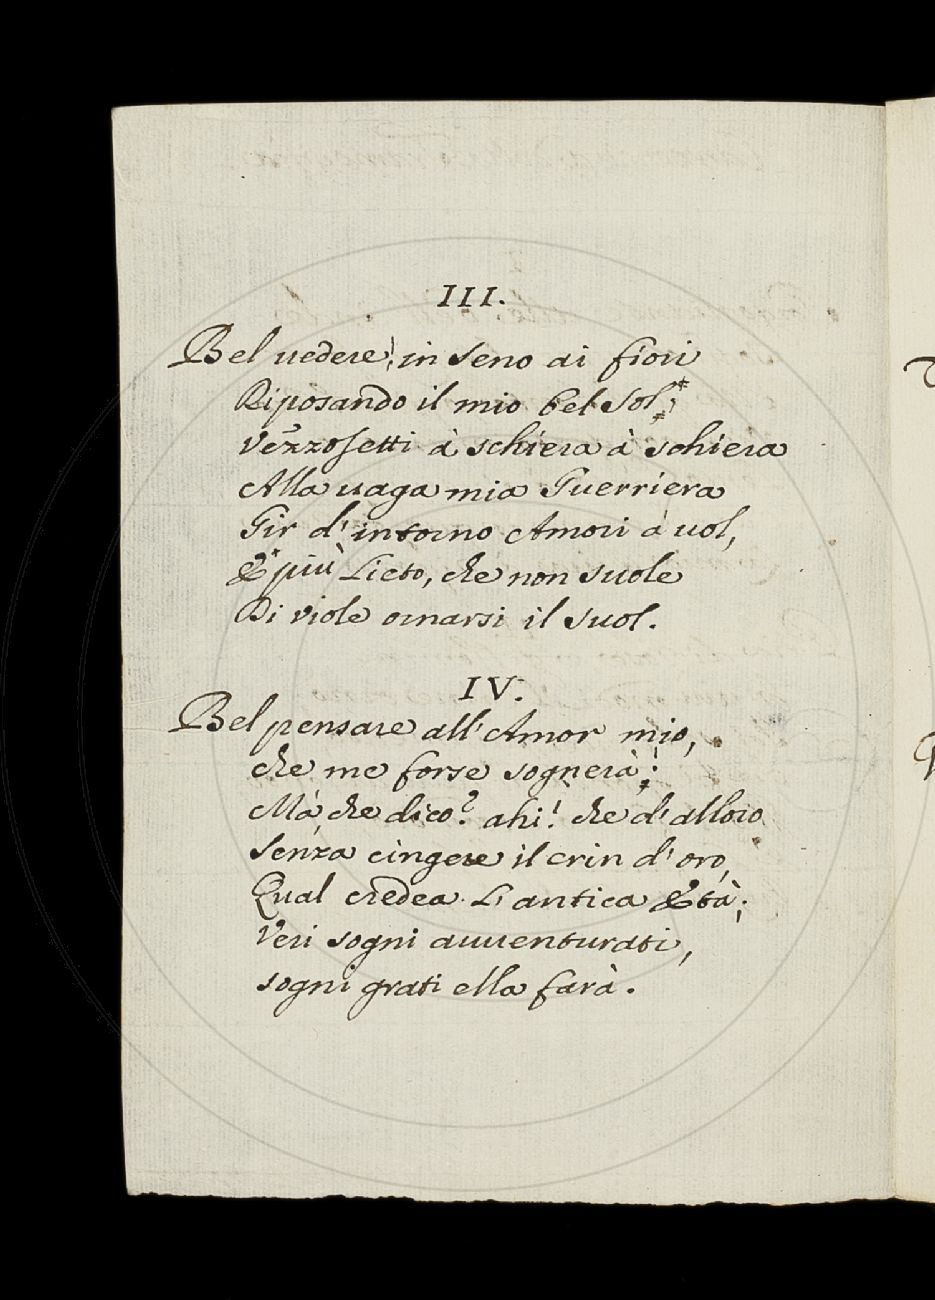 III.
Bel uedere! in seno ai fiori
Riposando il mio bel Sol;
Vezzosetti à schiera à schiera
Alla uaga mia Guerriera
Gir d'intorno Amori à uol,
E più Lieto, che non suole
Di viole ornarsi il suol.
IV.
Bel pensare all'Amor mio,
che me forse sognerà!
Mà che dico? ahi! che d'alloro
senza cingere il crin d'oro,
Qual credea L'antica Età;
Veri sogni auuenturati,
sogni grati ella farà.